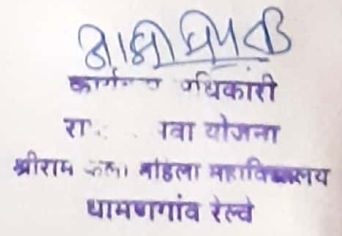 कार्यक्रम अधिकारी
रा. सेवा योजना
श्रीराम कला महिला महाविद्यालय
धामणगांव रेल्वे